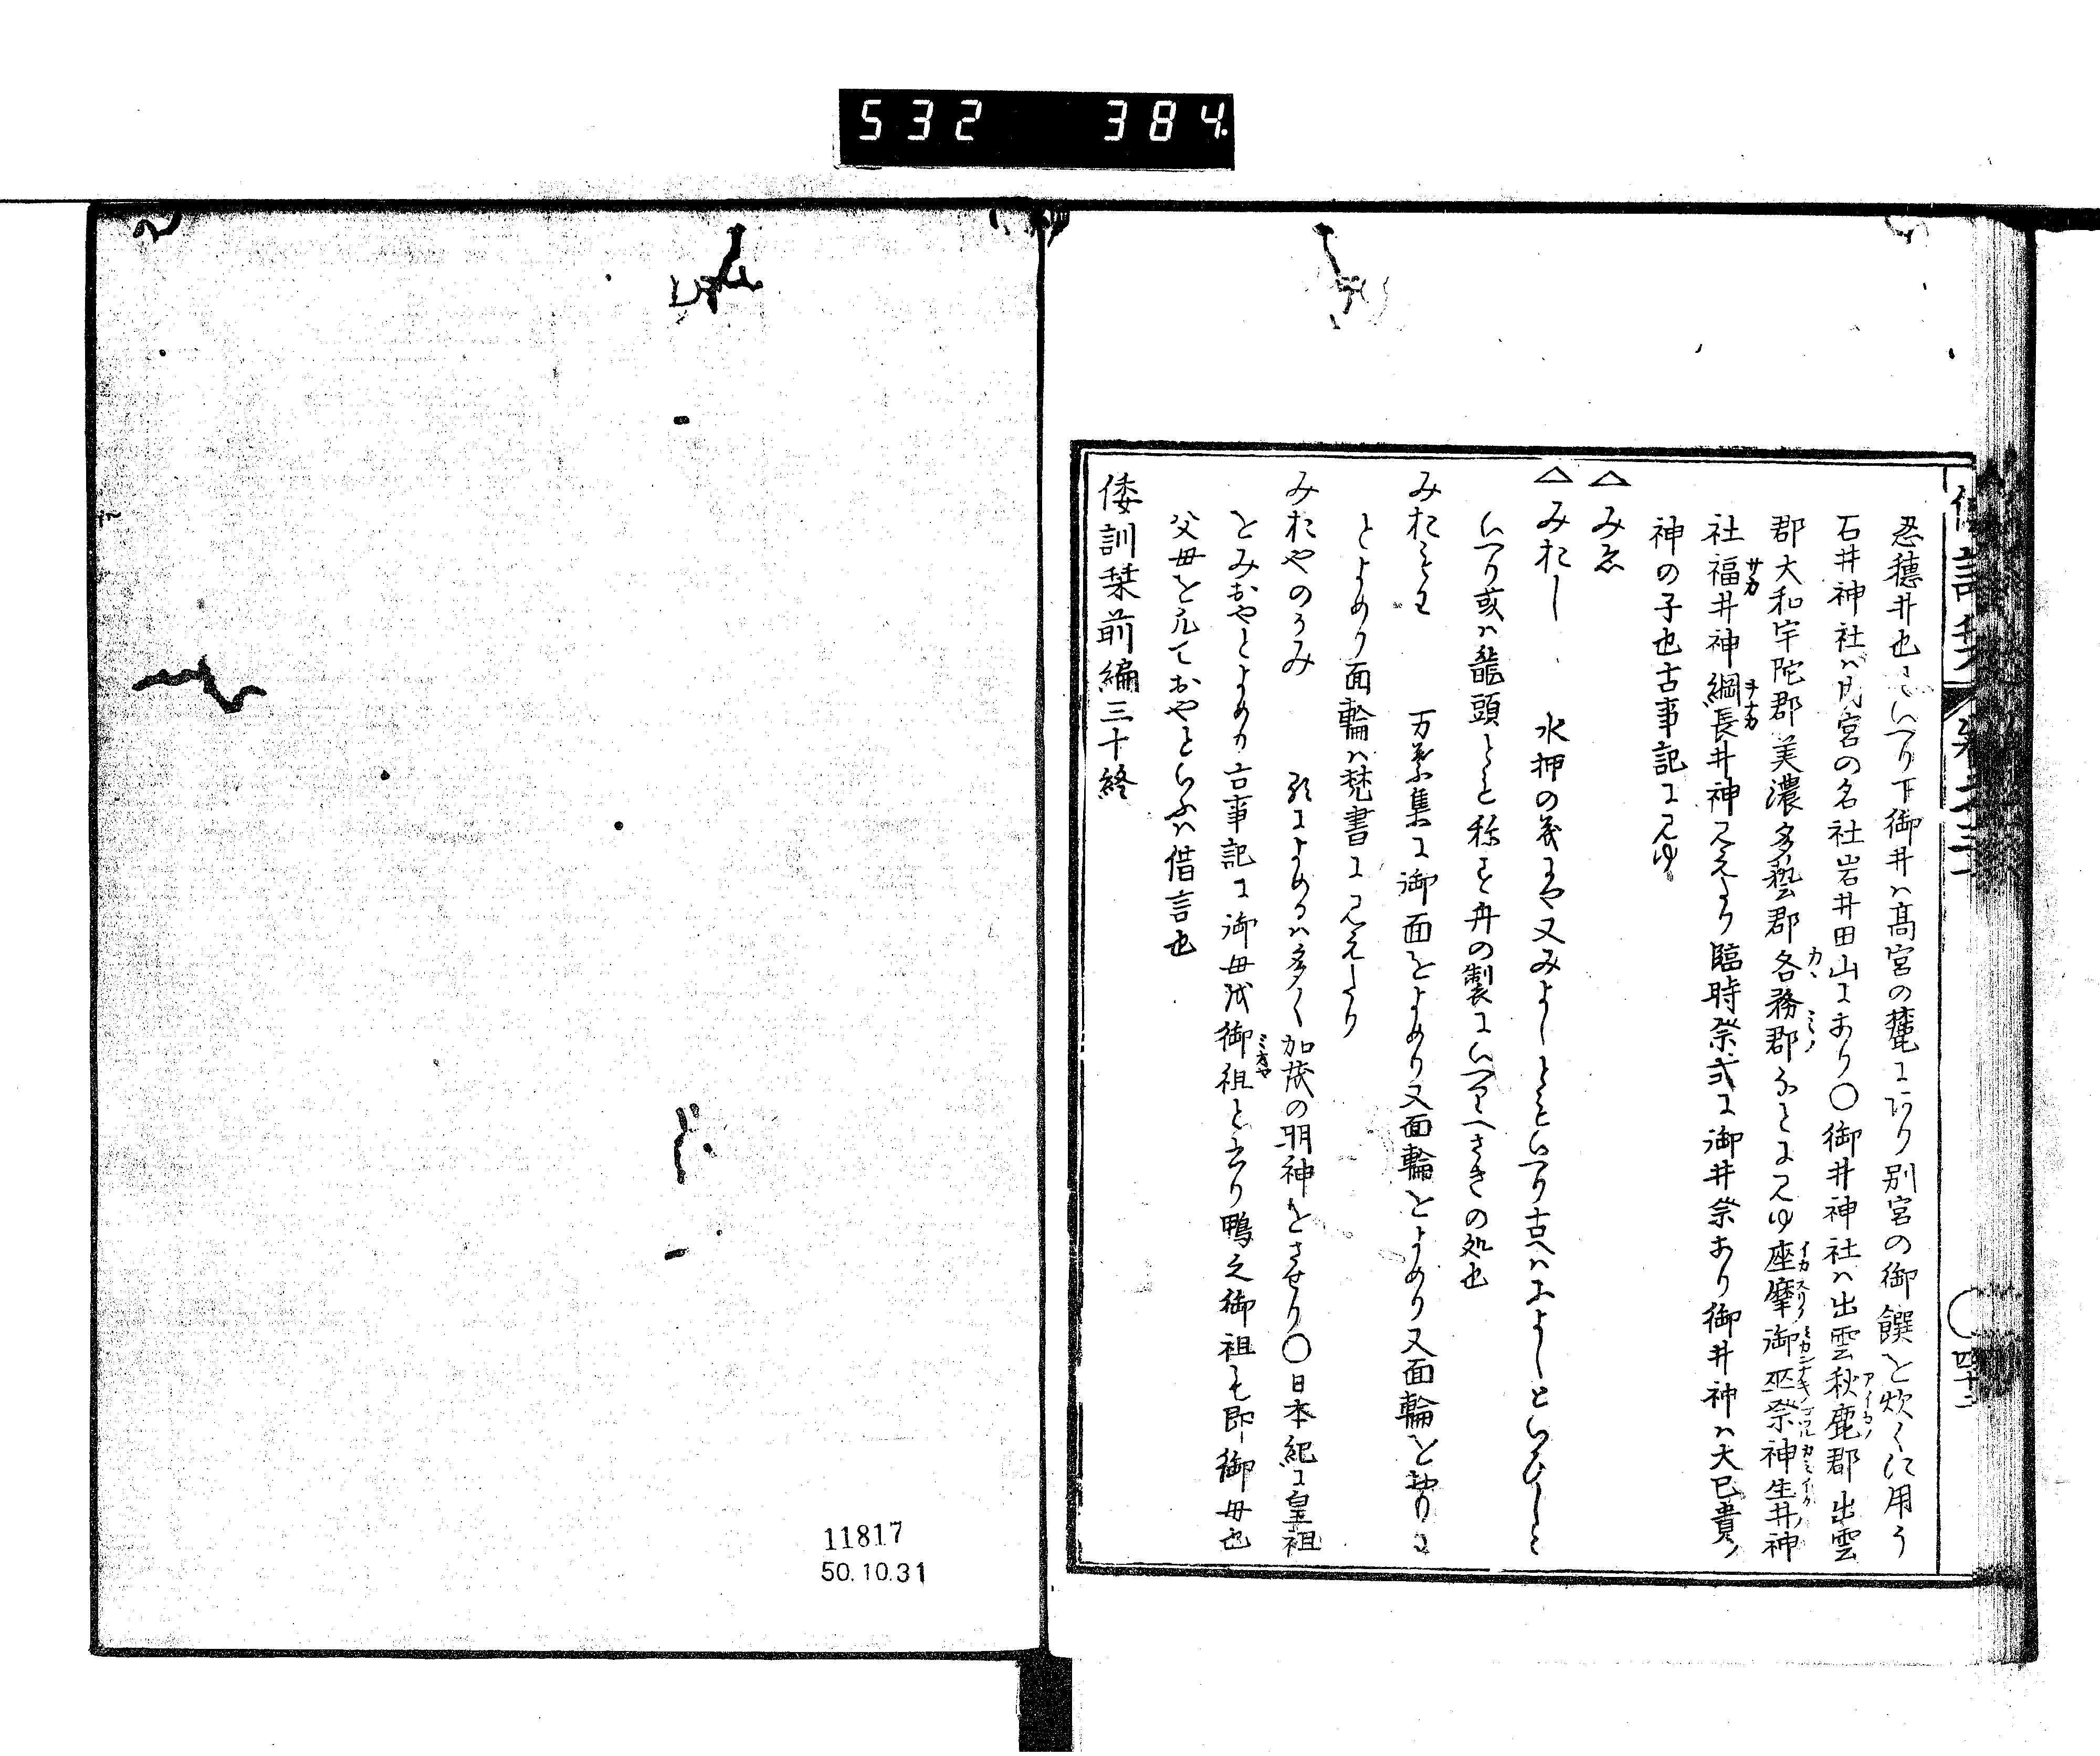 532 384.
忍穗井也といへり下御井ハ高宮の麓にあり別宮の御饌を炊くに用う
石井神社ハ内宮の名社岩井田山にあり〇御井神社ハ出雲秋鹿郡出雲
郡大和宇陀郡美濃多藝郡各務郡なとにみゆ座摩御巫祭神生井神
社福井神綱長井神みえたり臨時祭式に御井祭あり御井神ハ大已貴ノ
神の子也古事記にみゆ
△みゑ
△みおし 水押の義にや又みよしともいへり古へハみよしといひしと
いへり或ハ龍頭とも称す舟の製にいへりへさきの処也
みおもわ 万葉集に御面をよめり又面輪とよめり又面輪をおもわ
とよめり面輪ハ梵書にみえたり
みおやのかみ 歌によめるハ多く加茂の明神をさせり〇日本紀に皇祖
をみおやとよめり古事記に御母或御祖と云り鴨之御祖も即御母也
父母を兀ておやといふハ借言也
倭訓栞前編三十終
四十二
11817
50.10.31